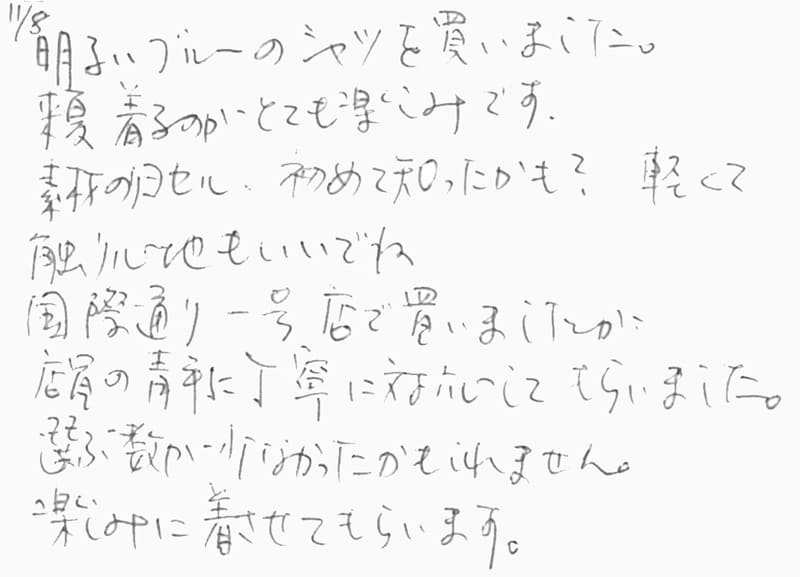 11/8
明るいブルーのシャツを買いました。
来夏着るのがとても楽しみです.
素材の 初めて知ったかも? 軽くて
触り心地もいいでね
国際通り一号店で買いましたが
店員の青年に丁寧に対応してもらいました。
選ぶ数が少なかったかもしれません。
楽しみに着させてもらいます。